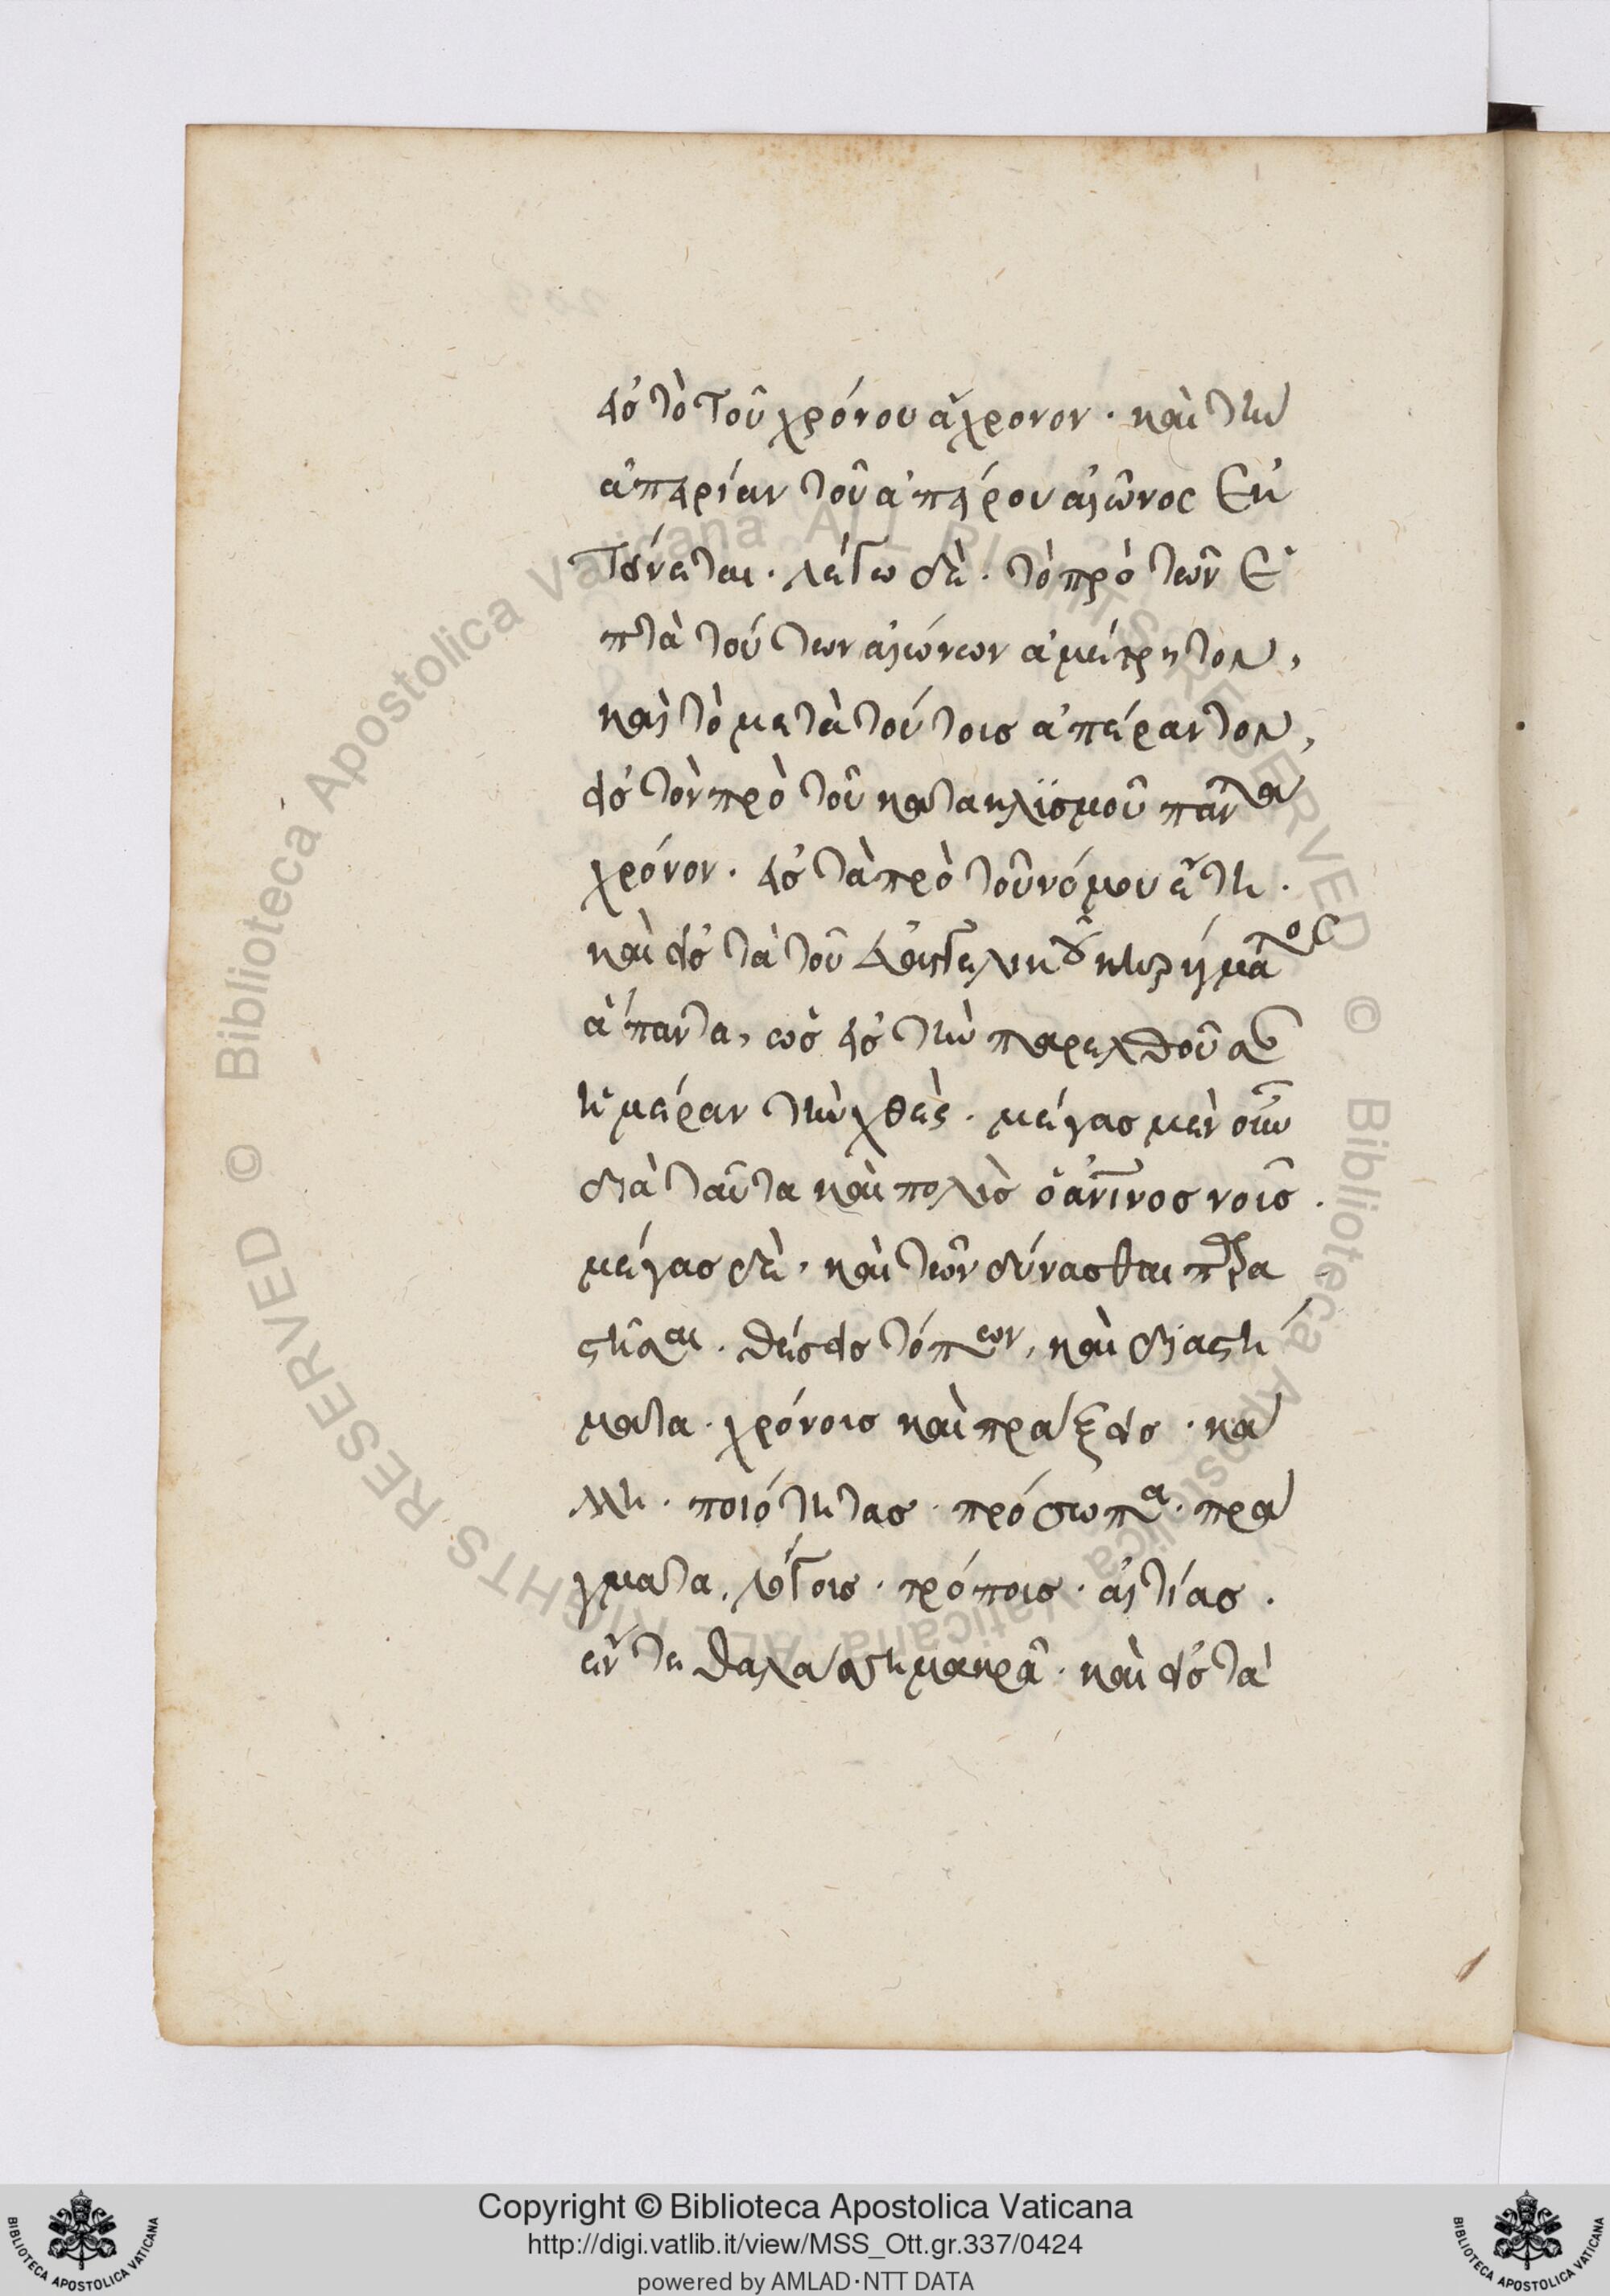 εἰς τὸ τοῦ χρόνου ἄχρονον · καὶ τὴν
ἀπειρίαν τοῦ ἀπείρου αἰῶνος ἐκ
τείνεται · λέγω δὲ · τὸ πρὸ τῶν ἑ
πτὰ τούτων αἰώνων ἀμέτρητον,
καὶ τὸ μετὰ τούτοις ἀπέραντον,
εἰς τὸν πρὸ τοῦ κατακλϊσμοῦ πάντα
χρόνον · εἰς τὰ πρὸ τοῦ νόμου ἔτη ·
καὶ εἰς τὰ τοῦ εὐαγγελικοῦ κηρύγματος
ἅπαντα, ὡς εἰς τὴν παρελθοῦσαν
ἡμέραν τὴν χθές · μέγας μὲν οὖν
διὰ ταῦτα καὶ πολὺς ὁ ἀνινος νοῦς ·
μέγας δὲ · καὶ τῶν δύνασθαι παρα
στῆσαι · θέσεις τόπων, καὶ διαστή
ματα · χρόνους καὶ πράξεις · κά
λλη · ποιότητας · πρόσωπα · πρά
γματα, λόγους · τρόπους · αἰτίας ·
ἔν τε θαλάσση μακρᾶ · καὶ εἰς τὰ
Copyright © Biblioteca Apostolica Vaticana
http://digi.vatlib.it/view/MSS_Ott.gr.337/0424
powered by AMLAD·NTT DATA
BIBLIOTECA APOSTOLICA VATICANA
BIBLIOTECA APOSTOLICA VATICANA
© Biblioteca Apostolica Vaticana ALL RIGHTS RESERVED
© Biblioteca Apostolica Vaticana ALL RIGHTS RESERVED